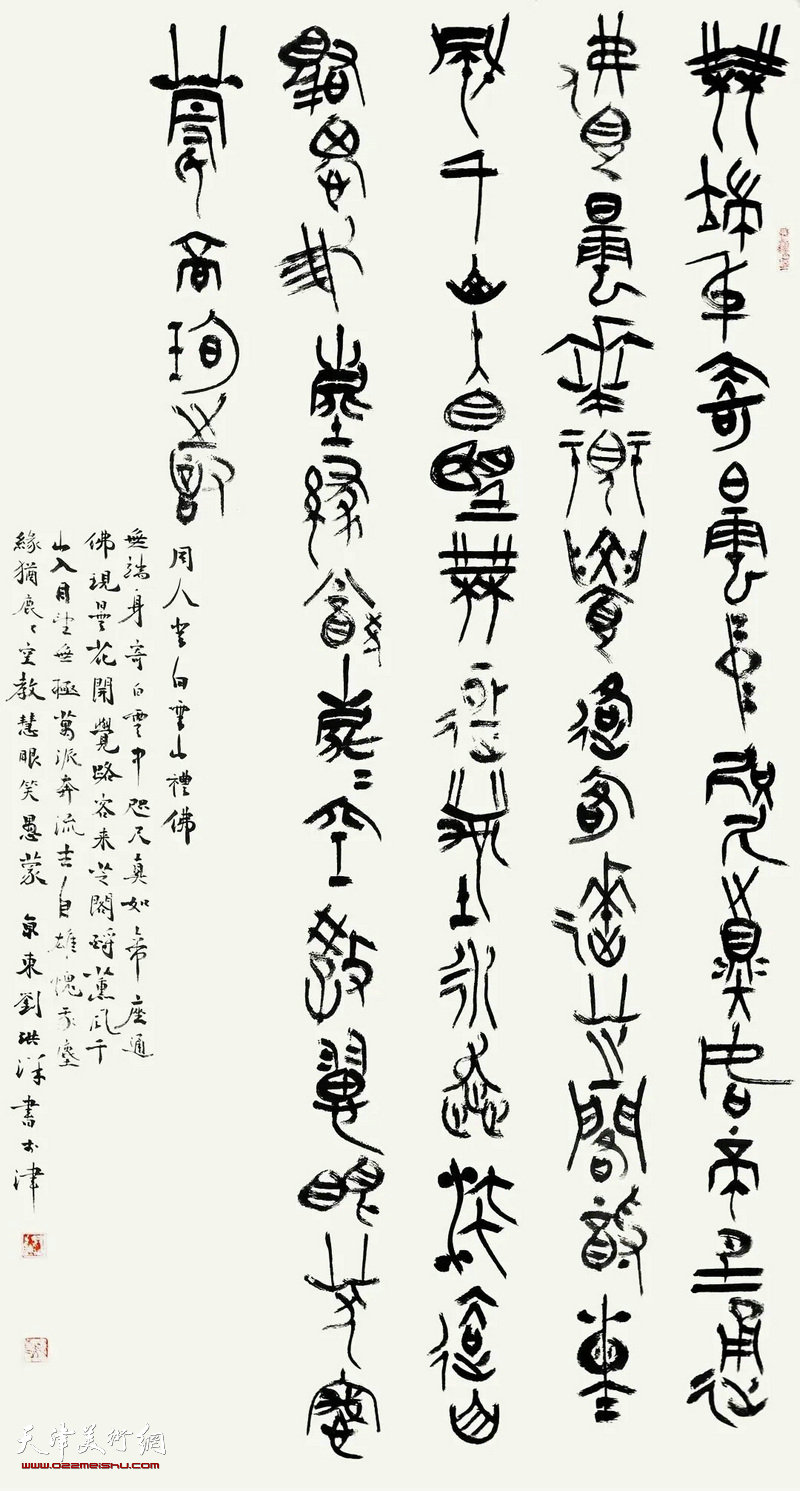 無端身寄白雲中咫尺真如帝座通
佛現曇華開覺路客來芝閣醉薰
風千山入目望無極萬派奔流去自
雄愧我塵緣猶鹿〻空教慧眼笑愚
蒙高珣之詩
同人登白雲山禮佛
無端身寄白雲中咫尺真如帝座通
佛現曇花開覺路客來芝閣醉薰風千
山入目望無極萬派奔流去自雄愧我塵
緣猶鹿〻空教慧眼笑愚蒙 京東劉洪洋書於津
天津美術網
www.022meishu.com